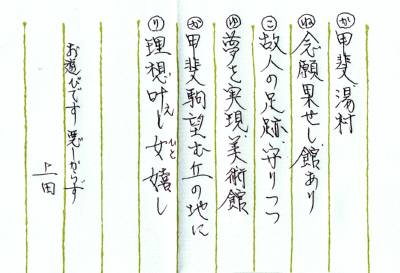 (か)甲斐湯村
(ね)念願果せし館あり
(こ)故人の足跡守りつつ
(ゆ)夢を実現美術館
(か)甲斐駒望む丘の地に
(り)理想叶えし女ひと嬉し
お遊びです 悪しからず
上田